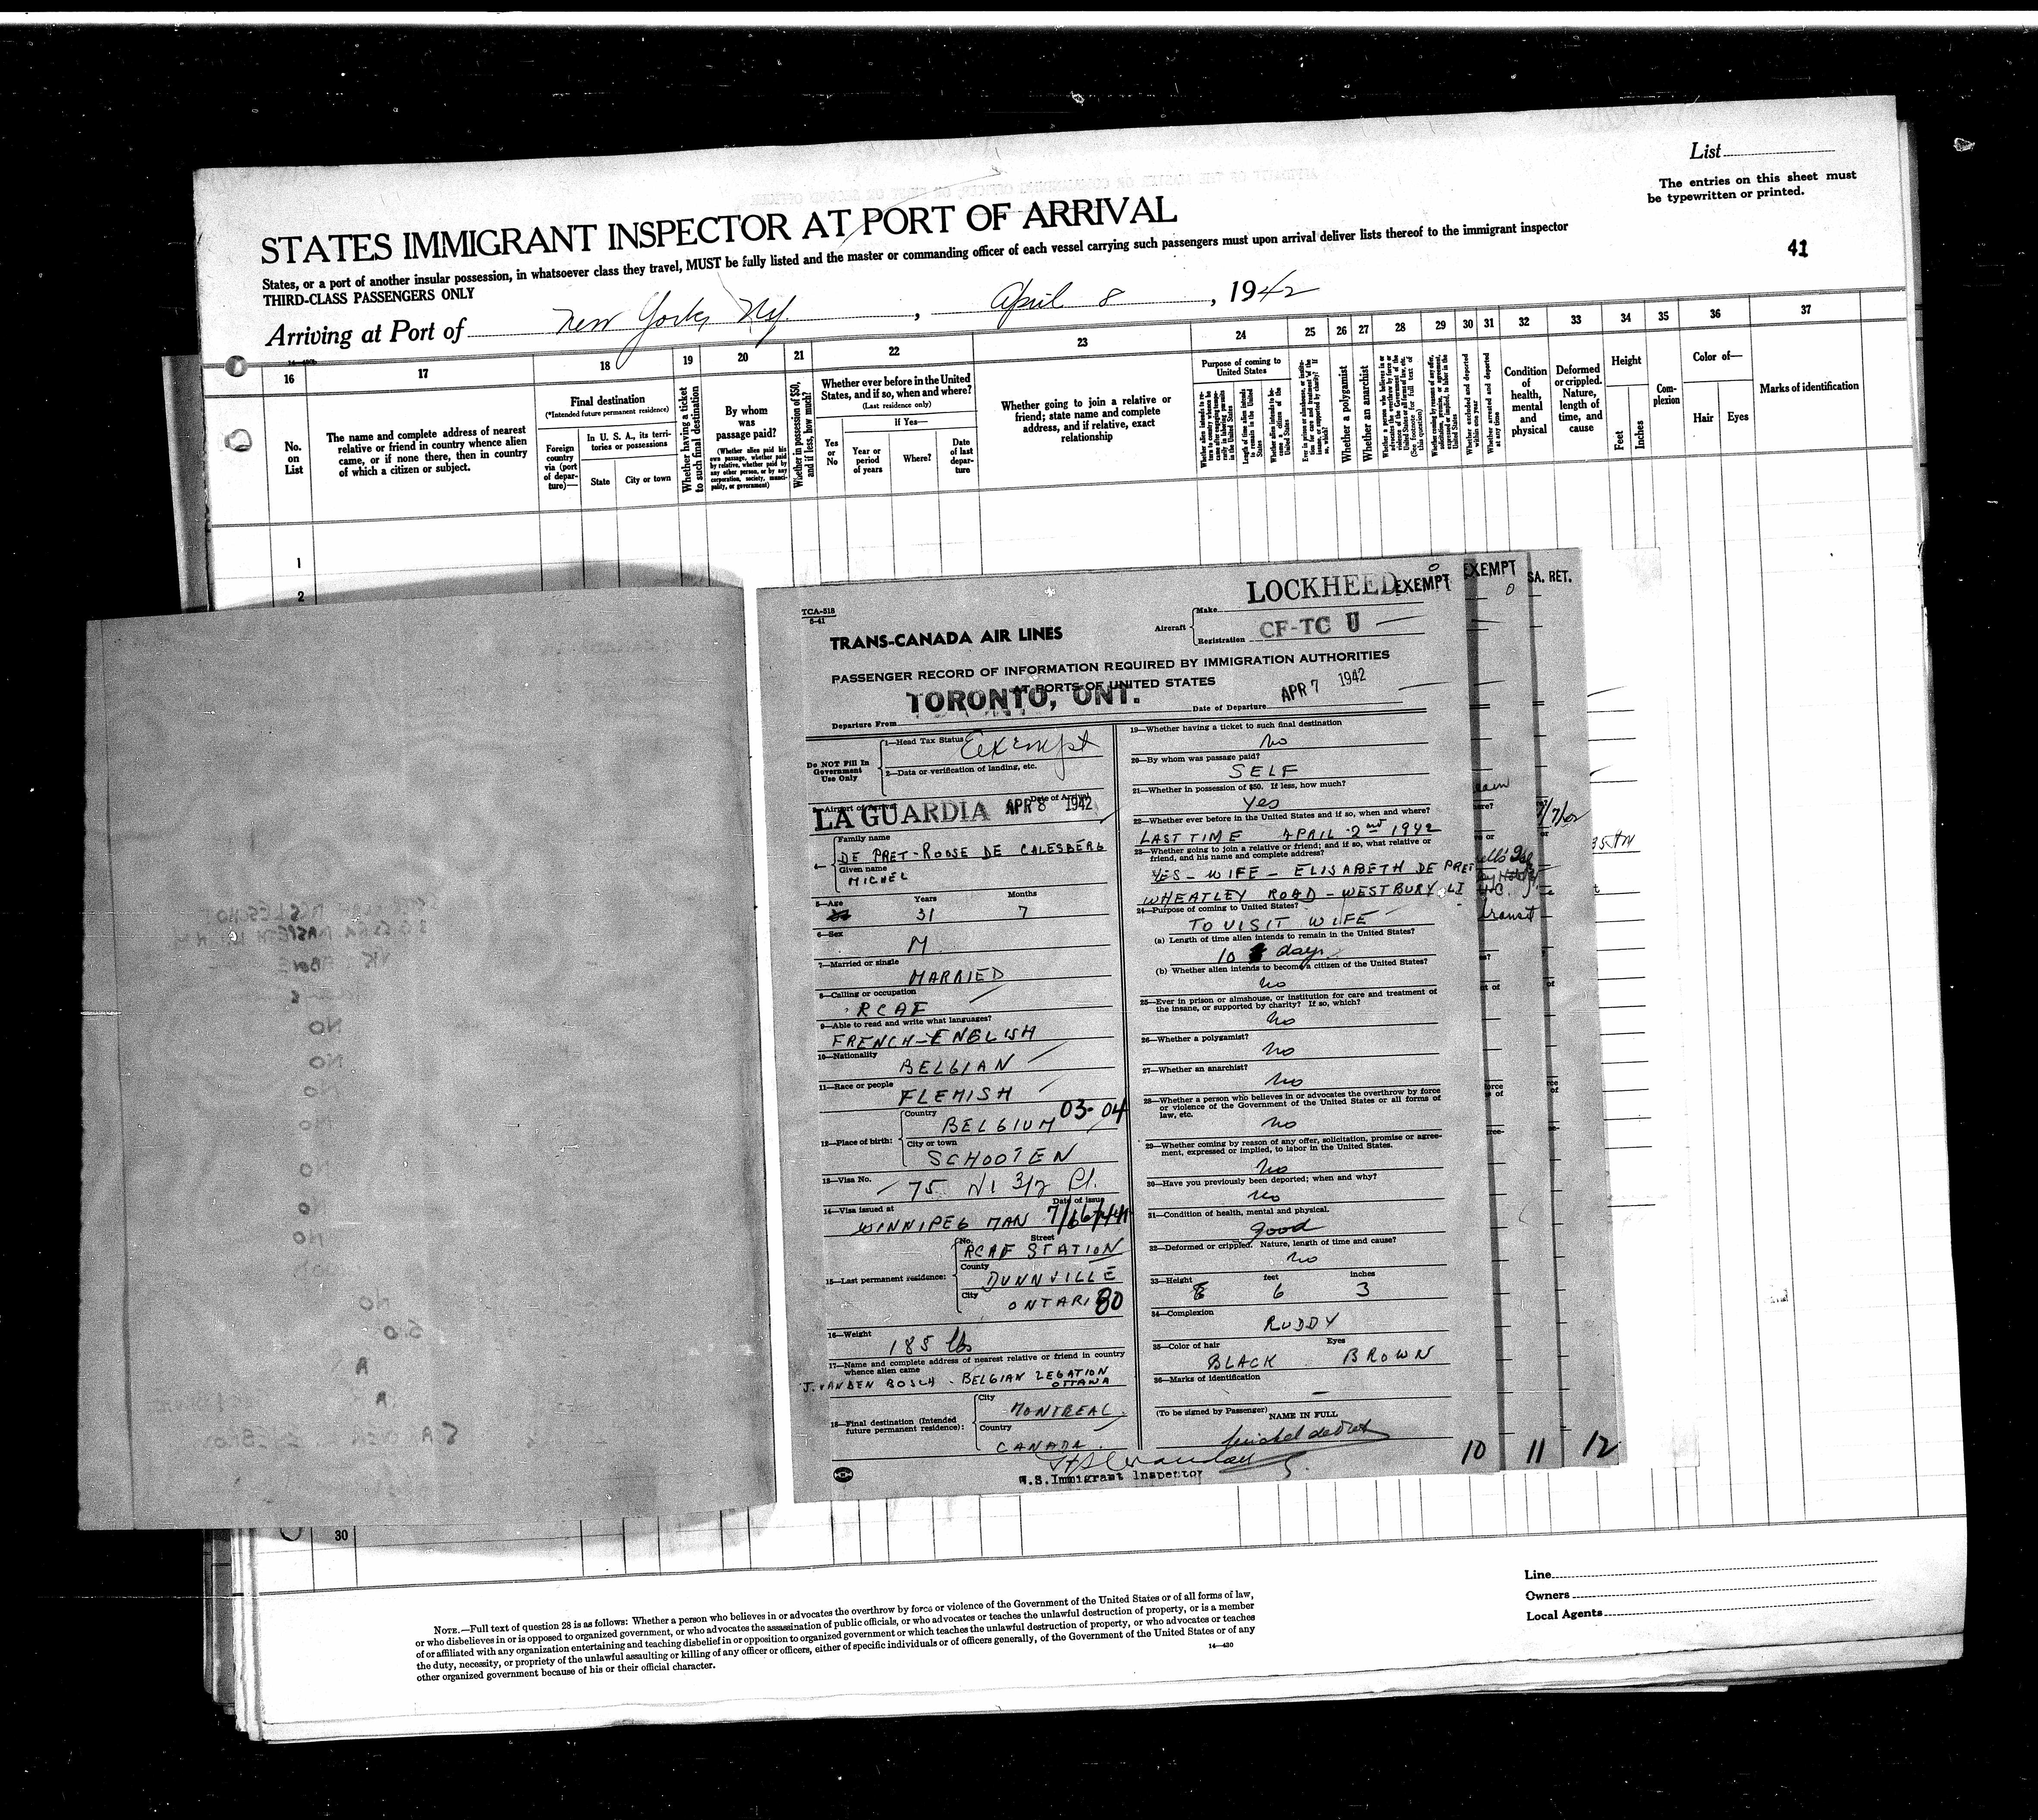 List
The entries on this sheet must
be typewritten or printed.
STATES IMMIGRANT INSPECTOR AT PORT OF ARRIVAL
41
States, or a port of another insular possession, in whatsoever class they travel, MUST be fully listed and the master or commanding officer of each vessel carrying such passengers must upon arrival deliver lists thereof to the immigrant inspector
THIRD-CLASS PASSENGERS ONLY
Arriving at Port of New York, NY. , April 8 , 1942
16 17 18 19 20 21 22 23 24 25 26 27 28 29 30 31 32 33 34 35 36 37
No. on List
The name and complete address of nearest
relative or friend in country whence alien
came, or if none there, then in country
of which a citizen or subject.
Final destination
(*Intended future permanent residence)
Foreign country via (port of departure)—
In U. S. A., its territories or possessions
State
City or town
Whether having a ticket to such final destination
By whom was passage paid?
(Whether alien paid his own passage, whether paid by relative, whether paid by any other person, or by any corporation, society, municipality, or government)
Whether in possession of $50, and if less, how much?
Whether ever before in the United States, and if so, when and where?
(Last residence only)
Yes or No
If Yes—
Year or period of years
Where?
Date of last departure
Whether going to join a relative or
friend; state name and complete
address, and if relative, exact
relationship
Purpose of coming to United States
Whether a polygamist
Whether an anarchist
Whether excluded and deported within one year
Whether arrested and deported at any time
Condition of health, mental and physical
Deformed or crippled. Nature, length of time, and cause
Height
Feet
Inches
Complexion
Color of—
Hair
Eyes
Marks of identification
1
2
TCA-518
5-41
TRANS-CANADA AIR LINES
Aircraft
Make LOCKHEED
EXEMPT
EXEMPT
SA. RET.
Registration CF-TC U
PASSENGER RECORD OF INFORMATION REQUIRED BY IMMIGRATION AUTHORITIES
AT PORTS OF UNITED STATES
Departure From TORONTO, ONT.
Date of Departure APR 7 1942
Do NOT Fill In
Government
Use Only
1—Head Tax Status Exempt
2—Data or verification of landing, etc.
3—Airport of Arrival LA GUARDIA
Date of Arrival APR 8 1942
Family name
DE PRET-ROOSE DE CALESBERG
Given name
MICHEL
5—Age
Years 31
Months 7
6—Sex
M
7—Married or single
MARRIED
8—Calling or occupation
RCAF
9—Able to read and write what languages?
FRENCH-ENGLISH
10—Nationality
BELGIAN
11—Race or people
FLEMISH
12—Place of birth:
Country
BELGIUM 03-04
City or town
SCHOOTEN
13—Visa No.
75
14—Visa issued at
WINNIPEG MAN
Date of issue
15—Last permanent residence:
No. Street
RCAF STATION
County
DUNNVILLE
City
ONTARIO 80
16—Weight
185 lbs
17—Name and complete address of nearest relative or friend in country
whence alien came
J. VANDEN BOSCH - BELGIAN LEGATION
OTTAWA
18—Final destination (Intended
future permanent residence):
City
MONTREAL
Country
CANADA
U.S. Immigrant Inspector
19—Whether having a ticket to such final destination
No
20—By whom was passage paid?
SELF
21—Whether in possession of $50. If less, how much?
Yes
22—Whether ever before in the United States and if so, when and where?
LAST TIME APRIL 2nd 1942
23—Whether going to join a relative or friend; and if so, what relative or
friend, and his name and complete address?
YES - WIFE - ELISABETH DE PRET
WHEATLEY ROAD - WESTBURY LI
24—Purpose of coming to United States?
TO VISIT WIFE
(a) Length of time alien intends to remain in the United States?
10 days
(b) Whether alien intends to become a citizen of the United States?
No
25—Ever in prison or almshouse, or institution for care and treatment of
the insane, or supported by charity? If so, which?
No
26—Whether a polygamist?
No
27—Whether an anarchist?
No
28—Whether a person who believes in or advocates the overthrow by force
or violence of the Government of the United States or all forms of
law, etc.
No
29—Whether coming by reason of any offer, solicitation, promise or agree-
ment, expressed or implied, to labor in the United States.
No
30—Have you previously been deported; when and why?
No
31—Condition of health, mental and physical.
good
32—Deformed or crippled. Nature, length of time and cause?
No
33—Height
feet 6
inches 3
34—Complexion
RUDDY
35—Color of hair
BLACK
Eyes
BROWN
36—Marks of identification
(To be signed by Passenger) NAME IN FULL
Michel de Pret
transit
10 11 12
30
Line
Owners
Local Agents
NOTE.—Full text of question 28 is as follows: Whether a person who believes in or advocates the overthrow by force or violence of the Government of the United States or of all forms of law,
or who disbelieves in or is opposed to organized government, or who advocates the assassination of public officials, or who advocates or teaches the unlawful destruction of property, or is a member
of or affiliated with any organization entertaining and teaching disbelief in or opposition to organized government or which teaches the unlawful destruction of property, or who advocates or teaches
the duty, necessity, or propriety of the unlawful assaulting or killing of any officer or officers, either of specific individuals or of officers generally, of the Government of the United States or of any
other organized government because of his or their official character.
14—430